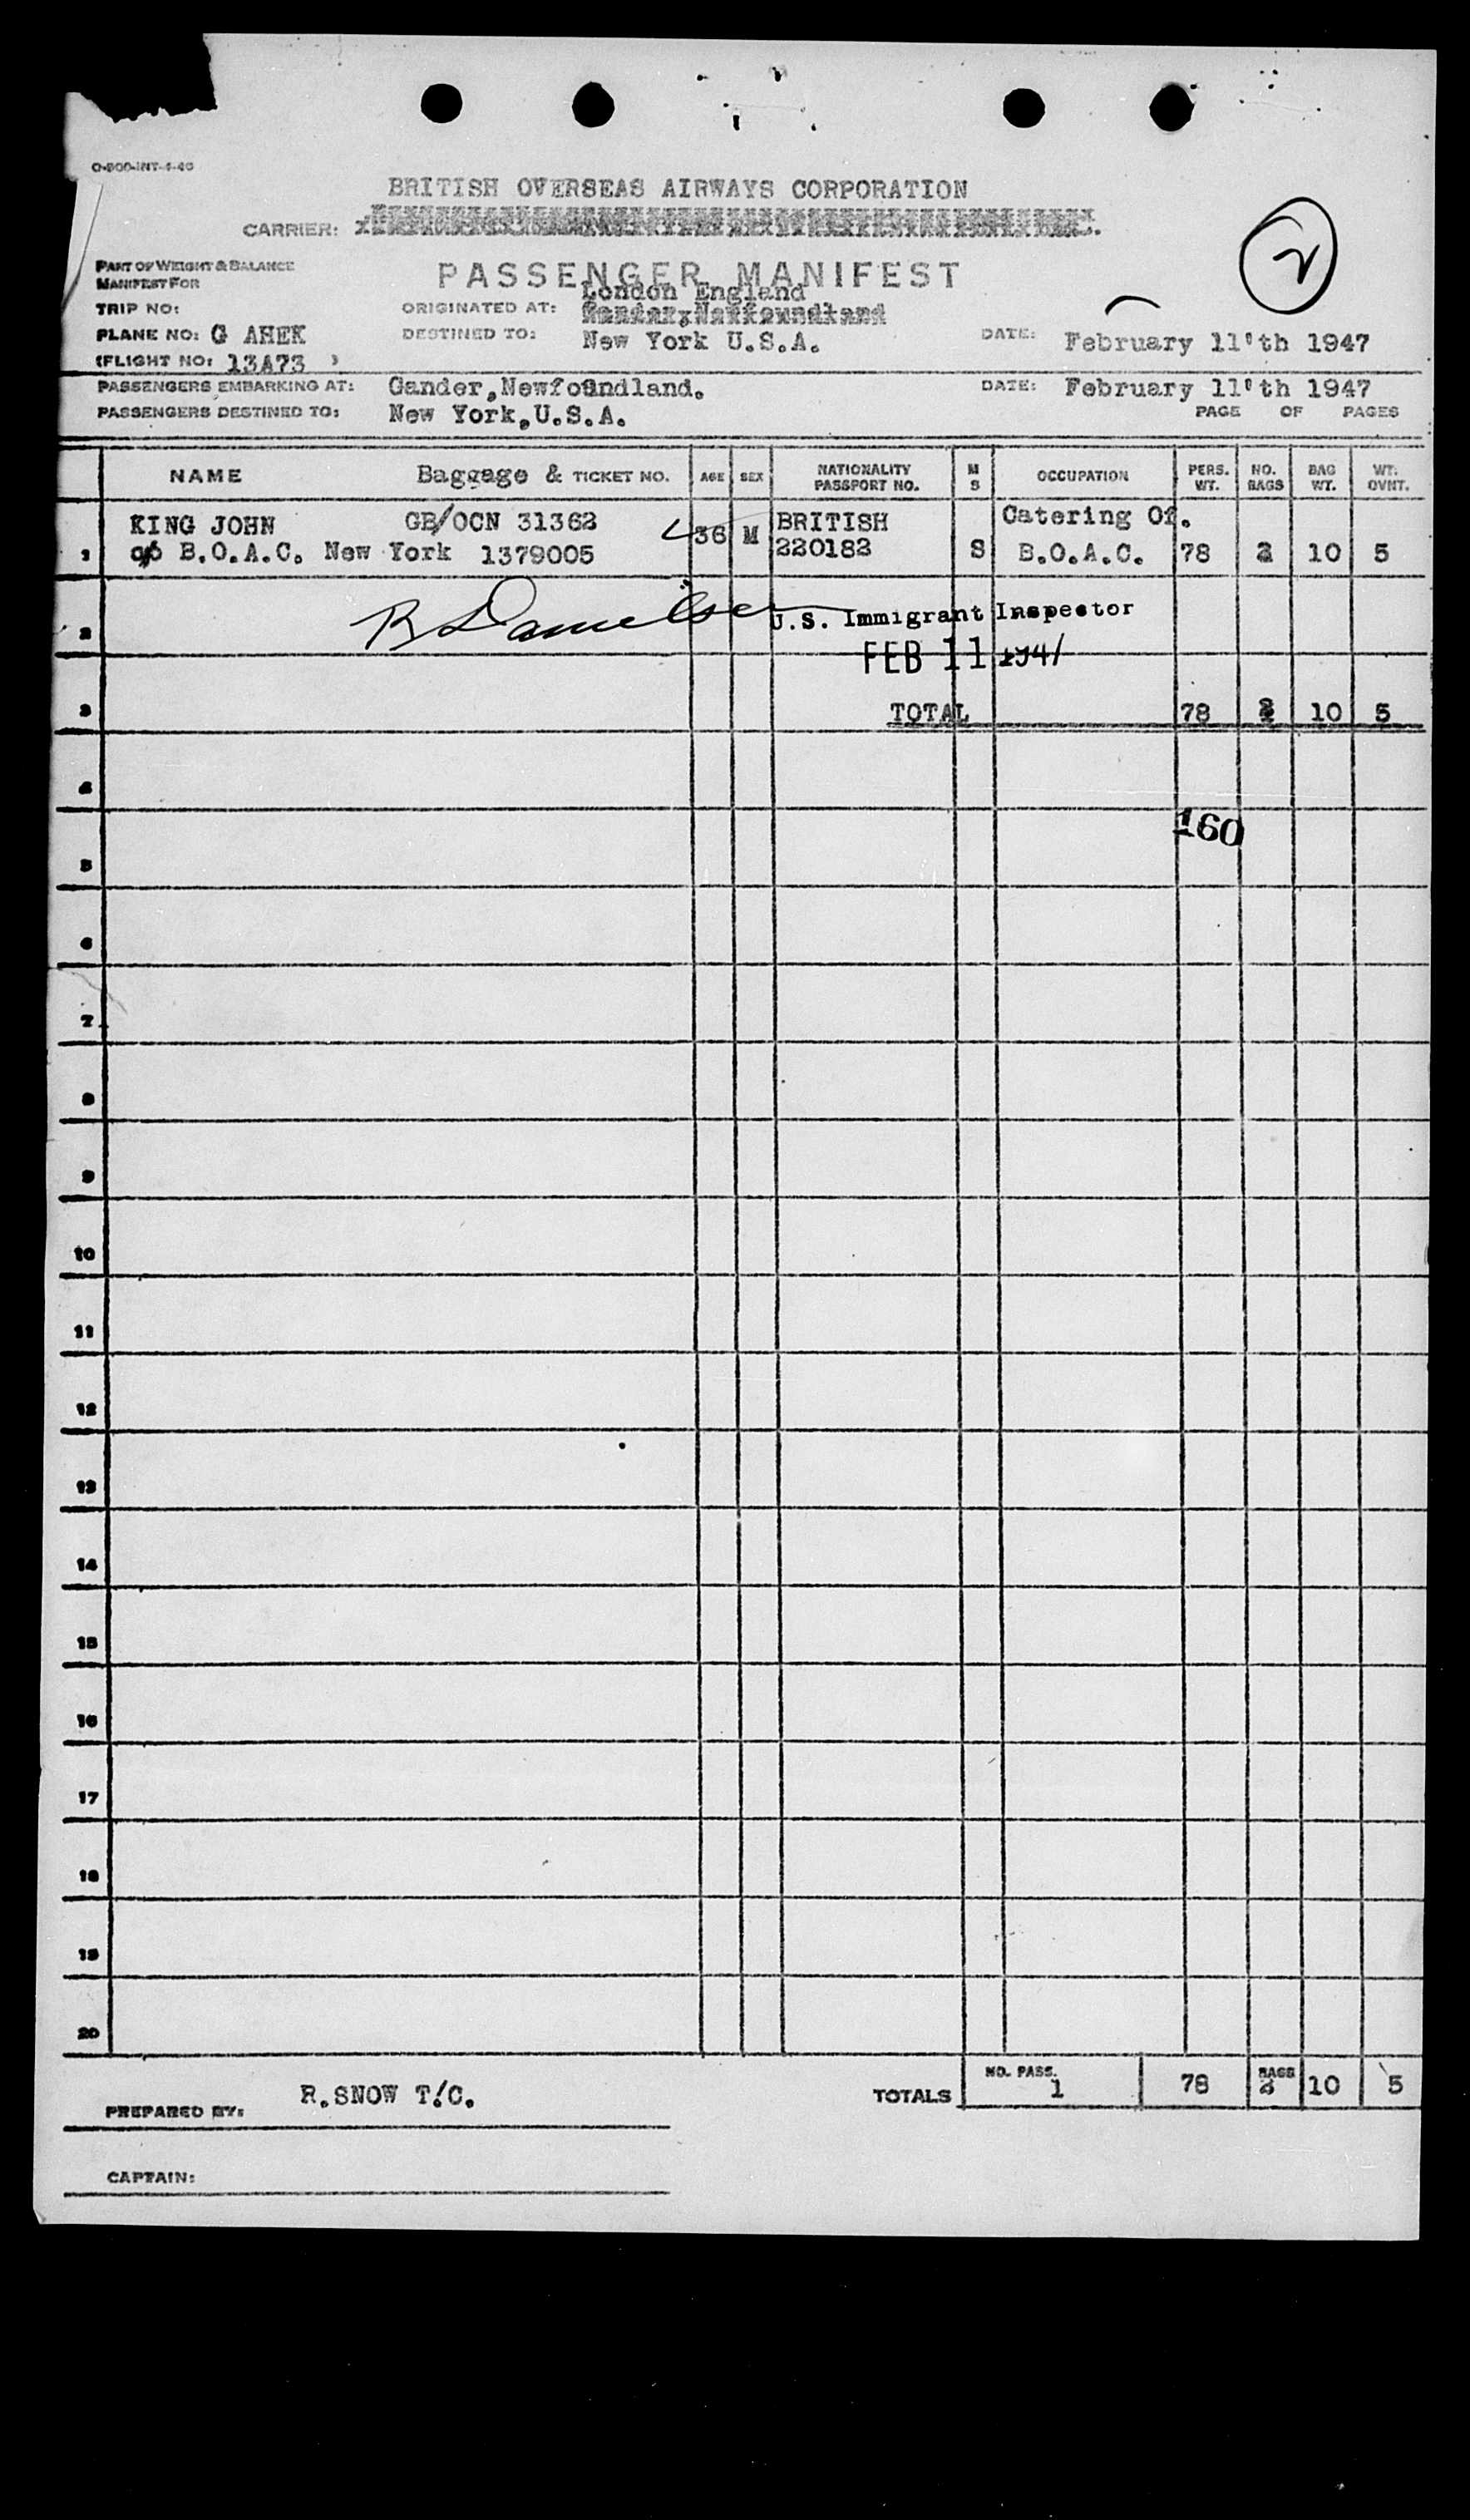 O-800-INT-4-46
BRITISH OVERSEAS AIRWAYS CORPORATION
CARRIER:
PART OF WEIGHT & BALANCE
MANIFEST FOR
PASSENGER MANIFEST
2
TRIP NO:
ORIGINATED AT: London England
Gander, Newfoundland
PLANE NO: G AHEK
DESTINED TO: New York U.S.A.
DATE: February 11'th 1947
(FLIGHT NO: 13A73 )
PASSENGERS EMBARKING AT: Gander, Newfoundland. DATE: February 11'th 1947
PASSENGERS DESTINED TO: New York, U.S.A. PAGE OF PAGES
NAME Baggage & TICKET NO. AGE SEX NATIONALITY PASSPORT NO. M S OCCUPATION PERS. WT. NO. BAGS BAG WT. WT. OVNT.
KING JOHN GB/OCN 31362 36 M BRITISH Catering Of.
1 c/o B.O.A.C. New York 1379005 220182 S B.O.A.C. 78 2 10 5
2 U.S. Immigrant Inspector
FEB 11 1947
3 TOTAL 78 2 10 5
4
160
5
6
7
8
9
10
11
12
13
14
15
16
17
18
19
20
TOTALS NO. PASS. 1 78 BAGS 2 10 5
PREPARED BY: R.SNOW T/C.
CAPTAIN: